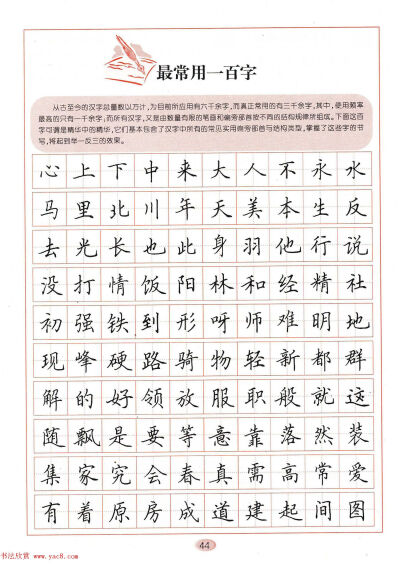 最常用一百字
从古至今的汉字总量数以万计,为目前所应用有六千余字,而真正常用的有三千余字,其中,使用频率
最高的只有一千余字,而所有汉字,又是由数量有限的笔画和偏旁部首按不同的结构规律所组成。下面这百
字可谓是精华中的精华,它们基本包含了汉字中所有的常见实用偏旁部首与结构类型,掌握了这些字的书
写,将起到举一反三的效果。
心上下中来大人不永水
马里北川年天美本生反
去光长也此身羽他行说
没打情饭阳林和经精社
初强铁到形呀师难明地
现峰硬路骑物轻新都群
解的好领放服职般就这
随飘是要等意靠落然装
集家究会春真需高常爱
有着原房成道建起间图
44
书法欣赏 www.yac8.com